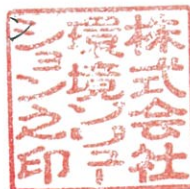 株式会社
環境ソリュー
ション之印